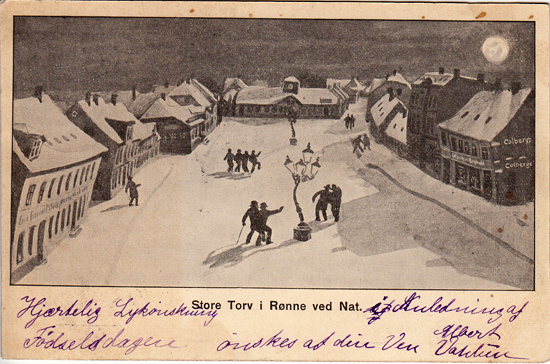 Colbergs
Colbergs
Store Torv i Rønne ved Nat.
Hjærtelig Lykönskning i Anledning af
Födselsdagen önskes af din Ven Albert
Vahlin